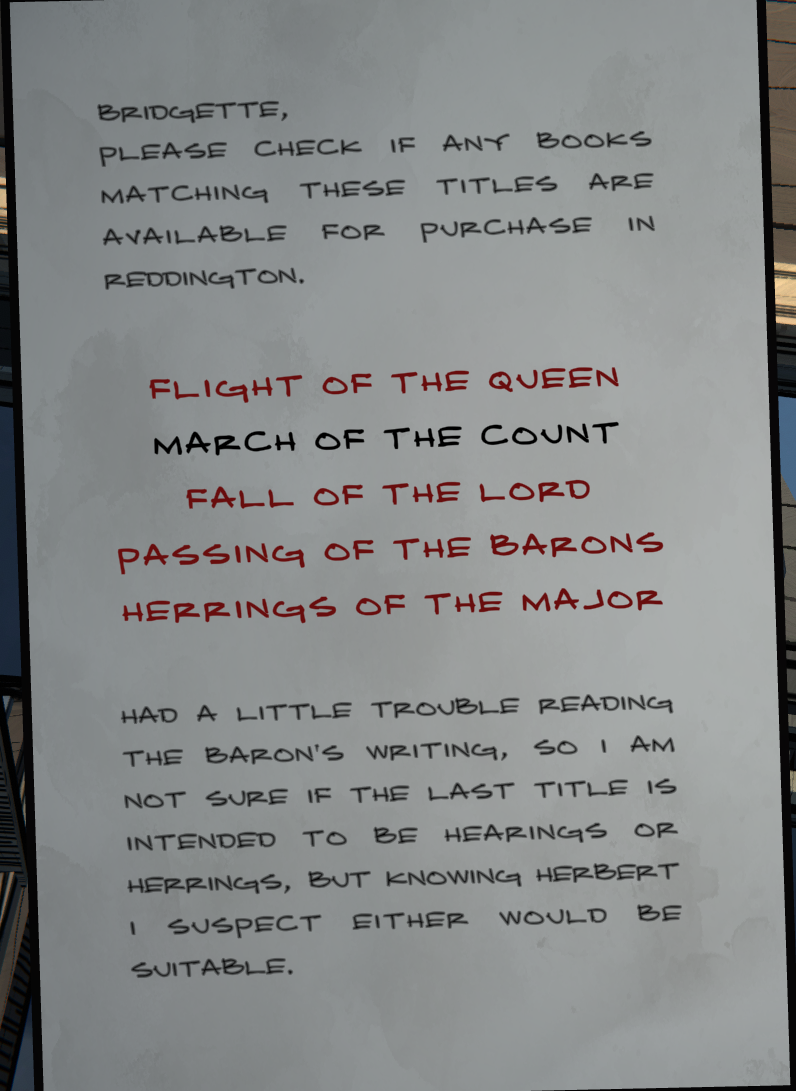 BRIDGETTE,
PLEASE CHECK IF ANY BOOKS
MATCHING THESE TITLES ARE
AVAILABLE FOR PURCHASE IN
REDDINGTON.
FLIGHT OF THE QUEEN
MARCH OF THE COUNT
FALL OF THE LORD
PASSING OF THE BARONS
HERRINGS OF THE MAJOR
HAD A LITTLE TROUBLE READING
THE BARON'S WRITING, SO I AM
NOT SURE IF THE LAST TITLE IS
INTENDED TO BE HEARINGS OR
HERRINGS, BUT KNOWING HERBERT
I SUSPECT EITHER WOULD BE
SUITABLE.